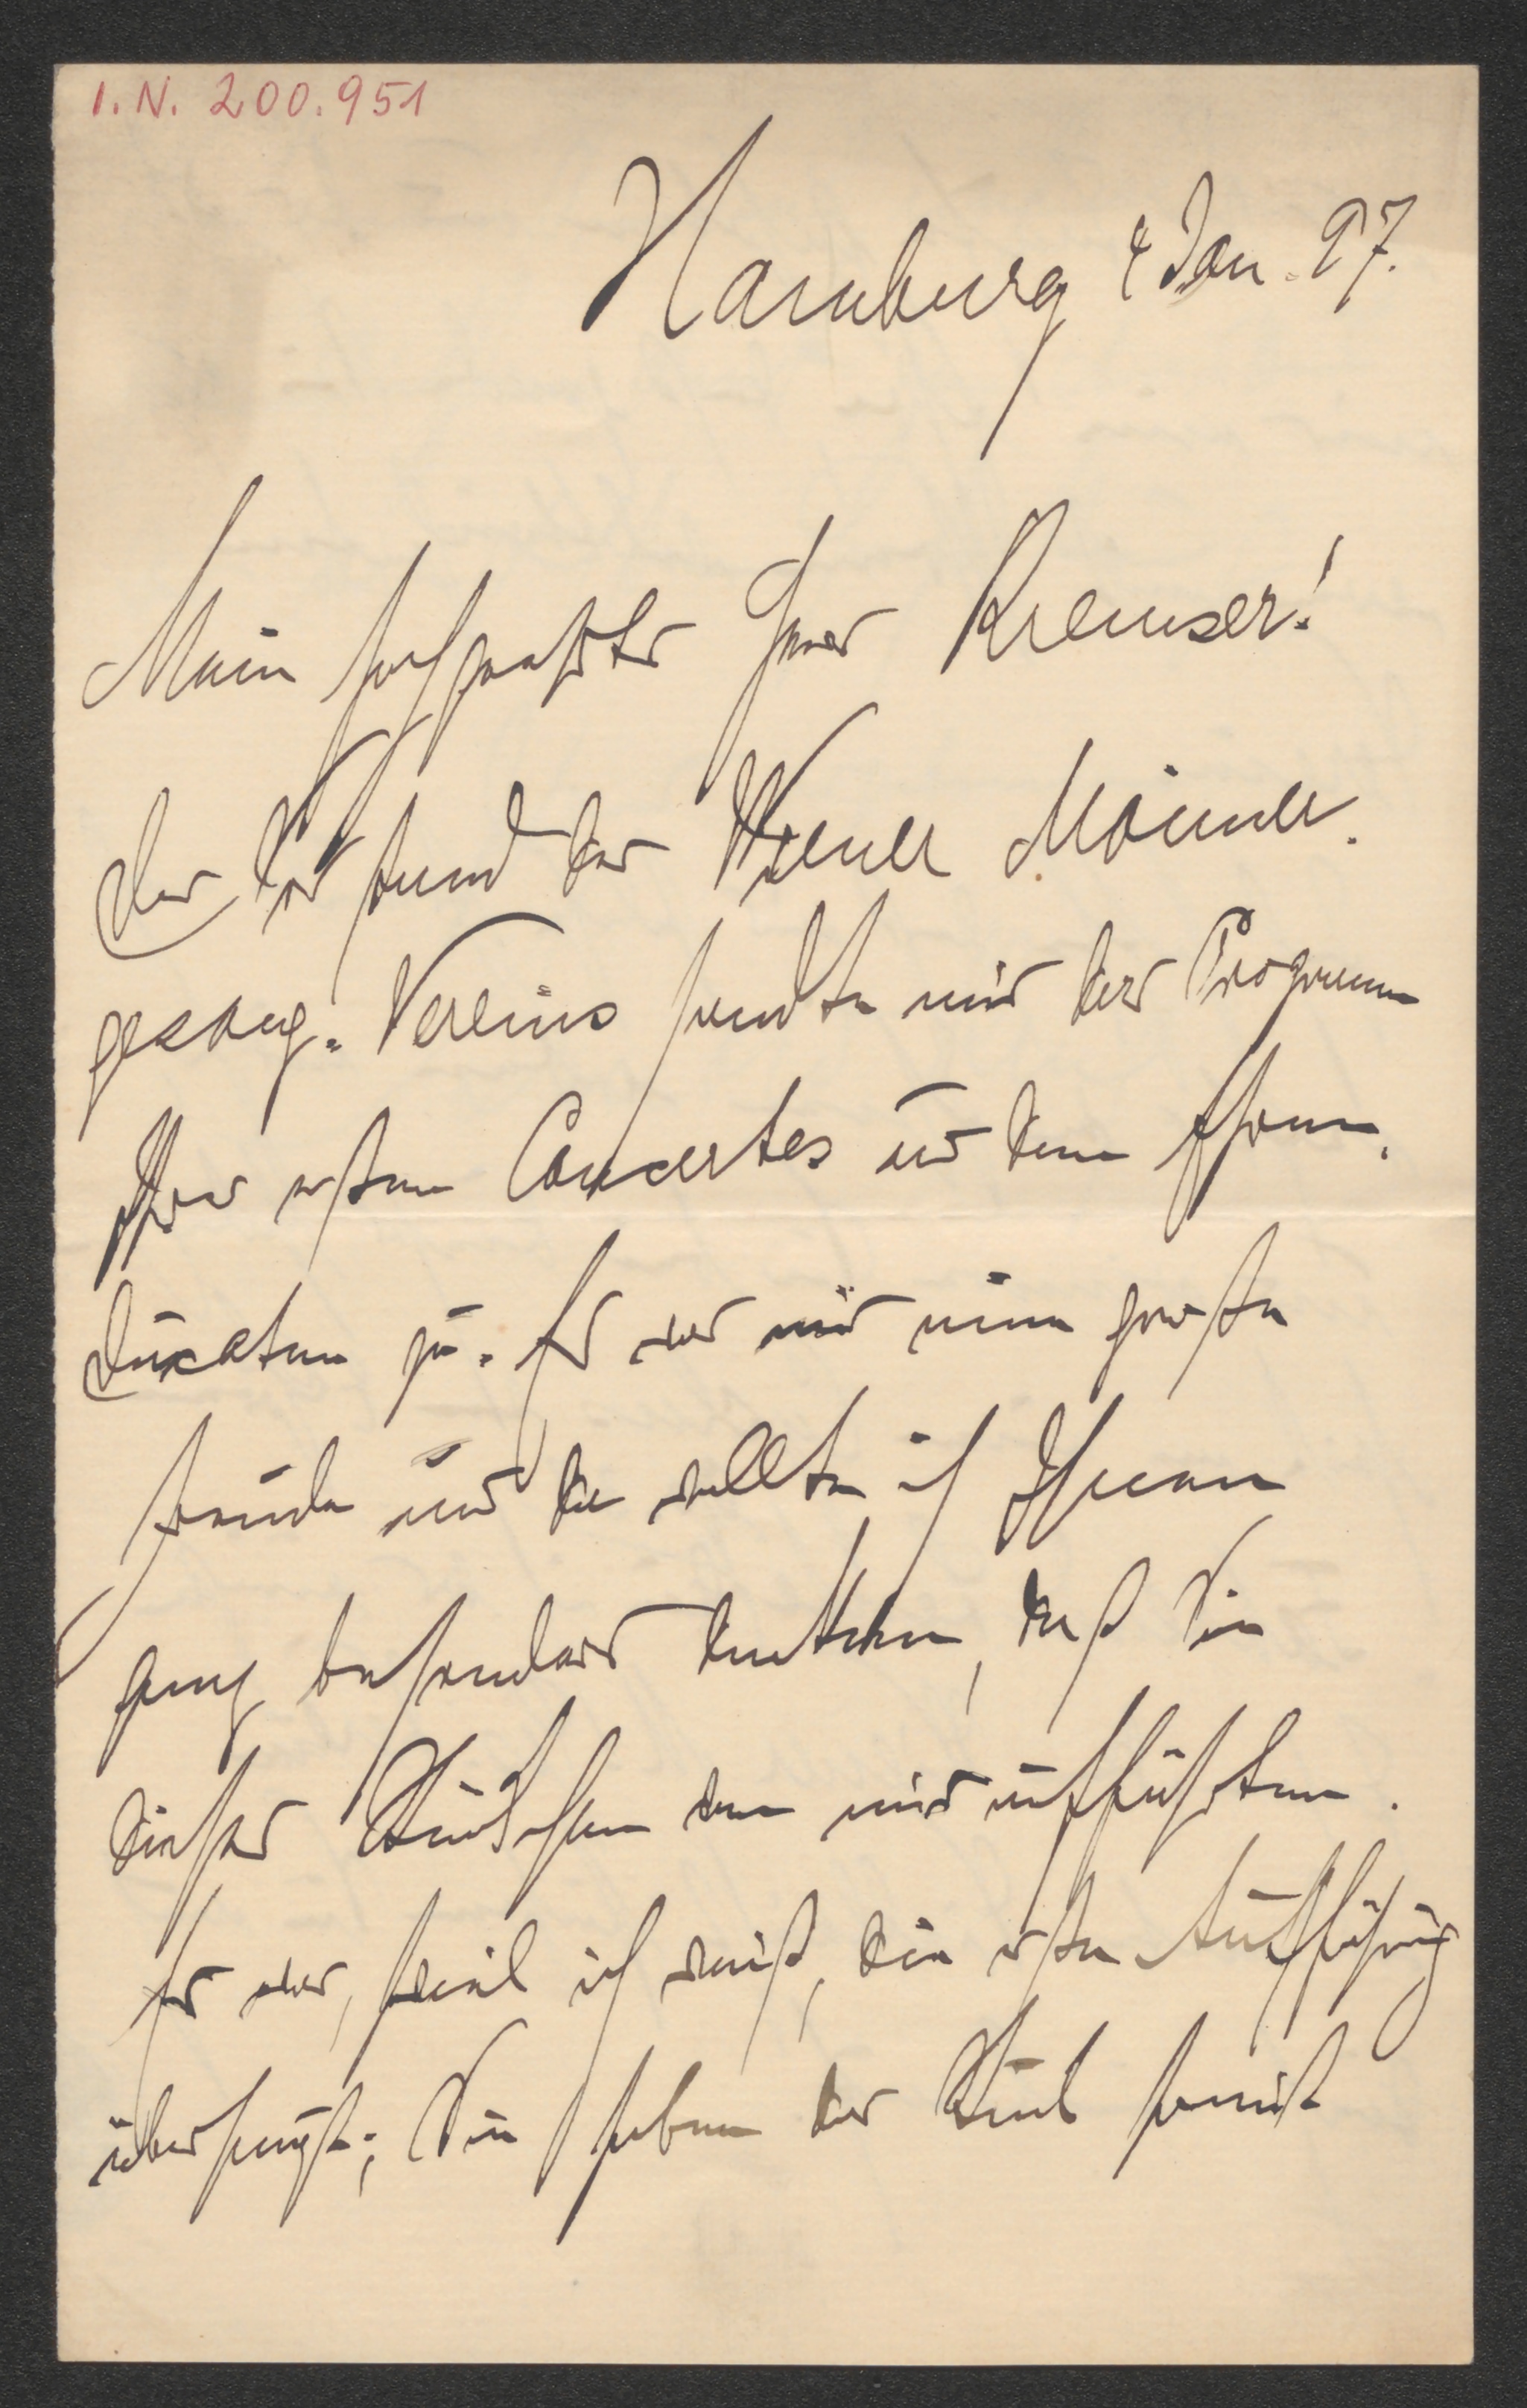 I.N. 200.951
Hamburg 4 Jan. 97.
Mein hochgeehrter Herr Kremser!
Der Vorstand des Wiener Männer-
gesang-Vereins sandte mir das Programm
Ihres ersten Concertes und den Ehren-
dukaten zu. Es war mir eine große
Freude und da wollte ich Ihnen
ganz besonders danken, daß Sie
dieses Stückchen von mir aufführten.
Es war, soviel ich weiß, die erste Aufführung
überhaupt; Sie haben das Stück somit